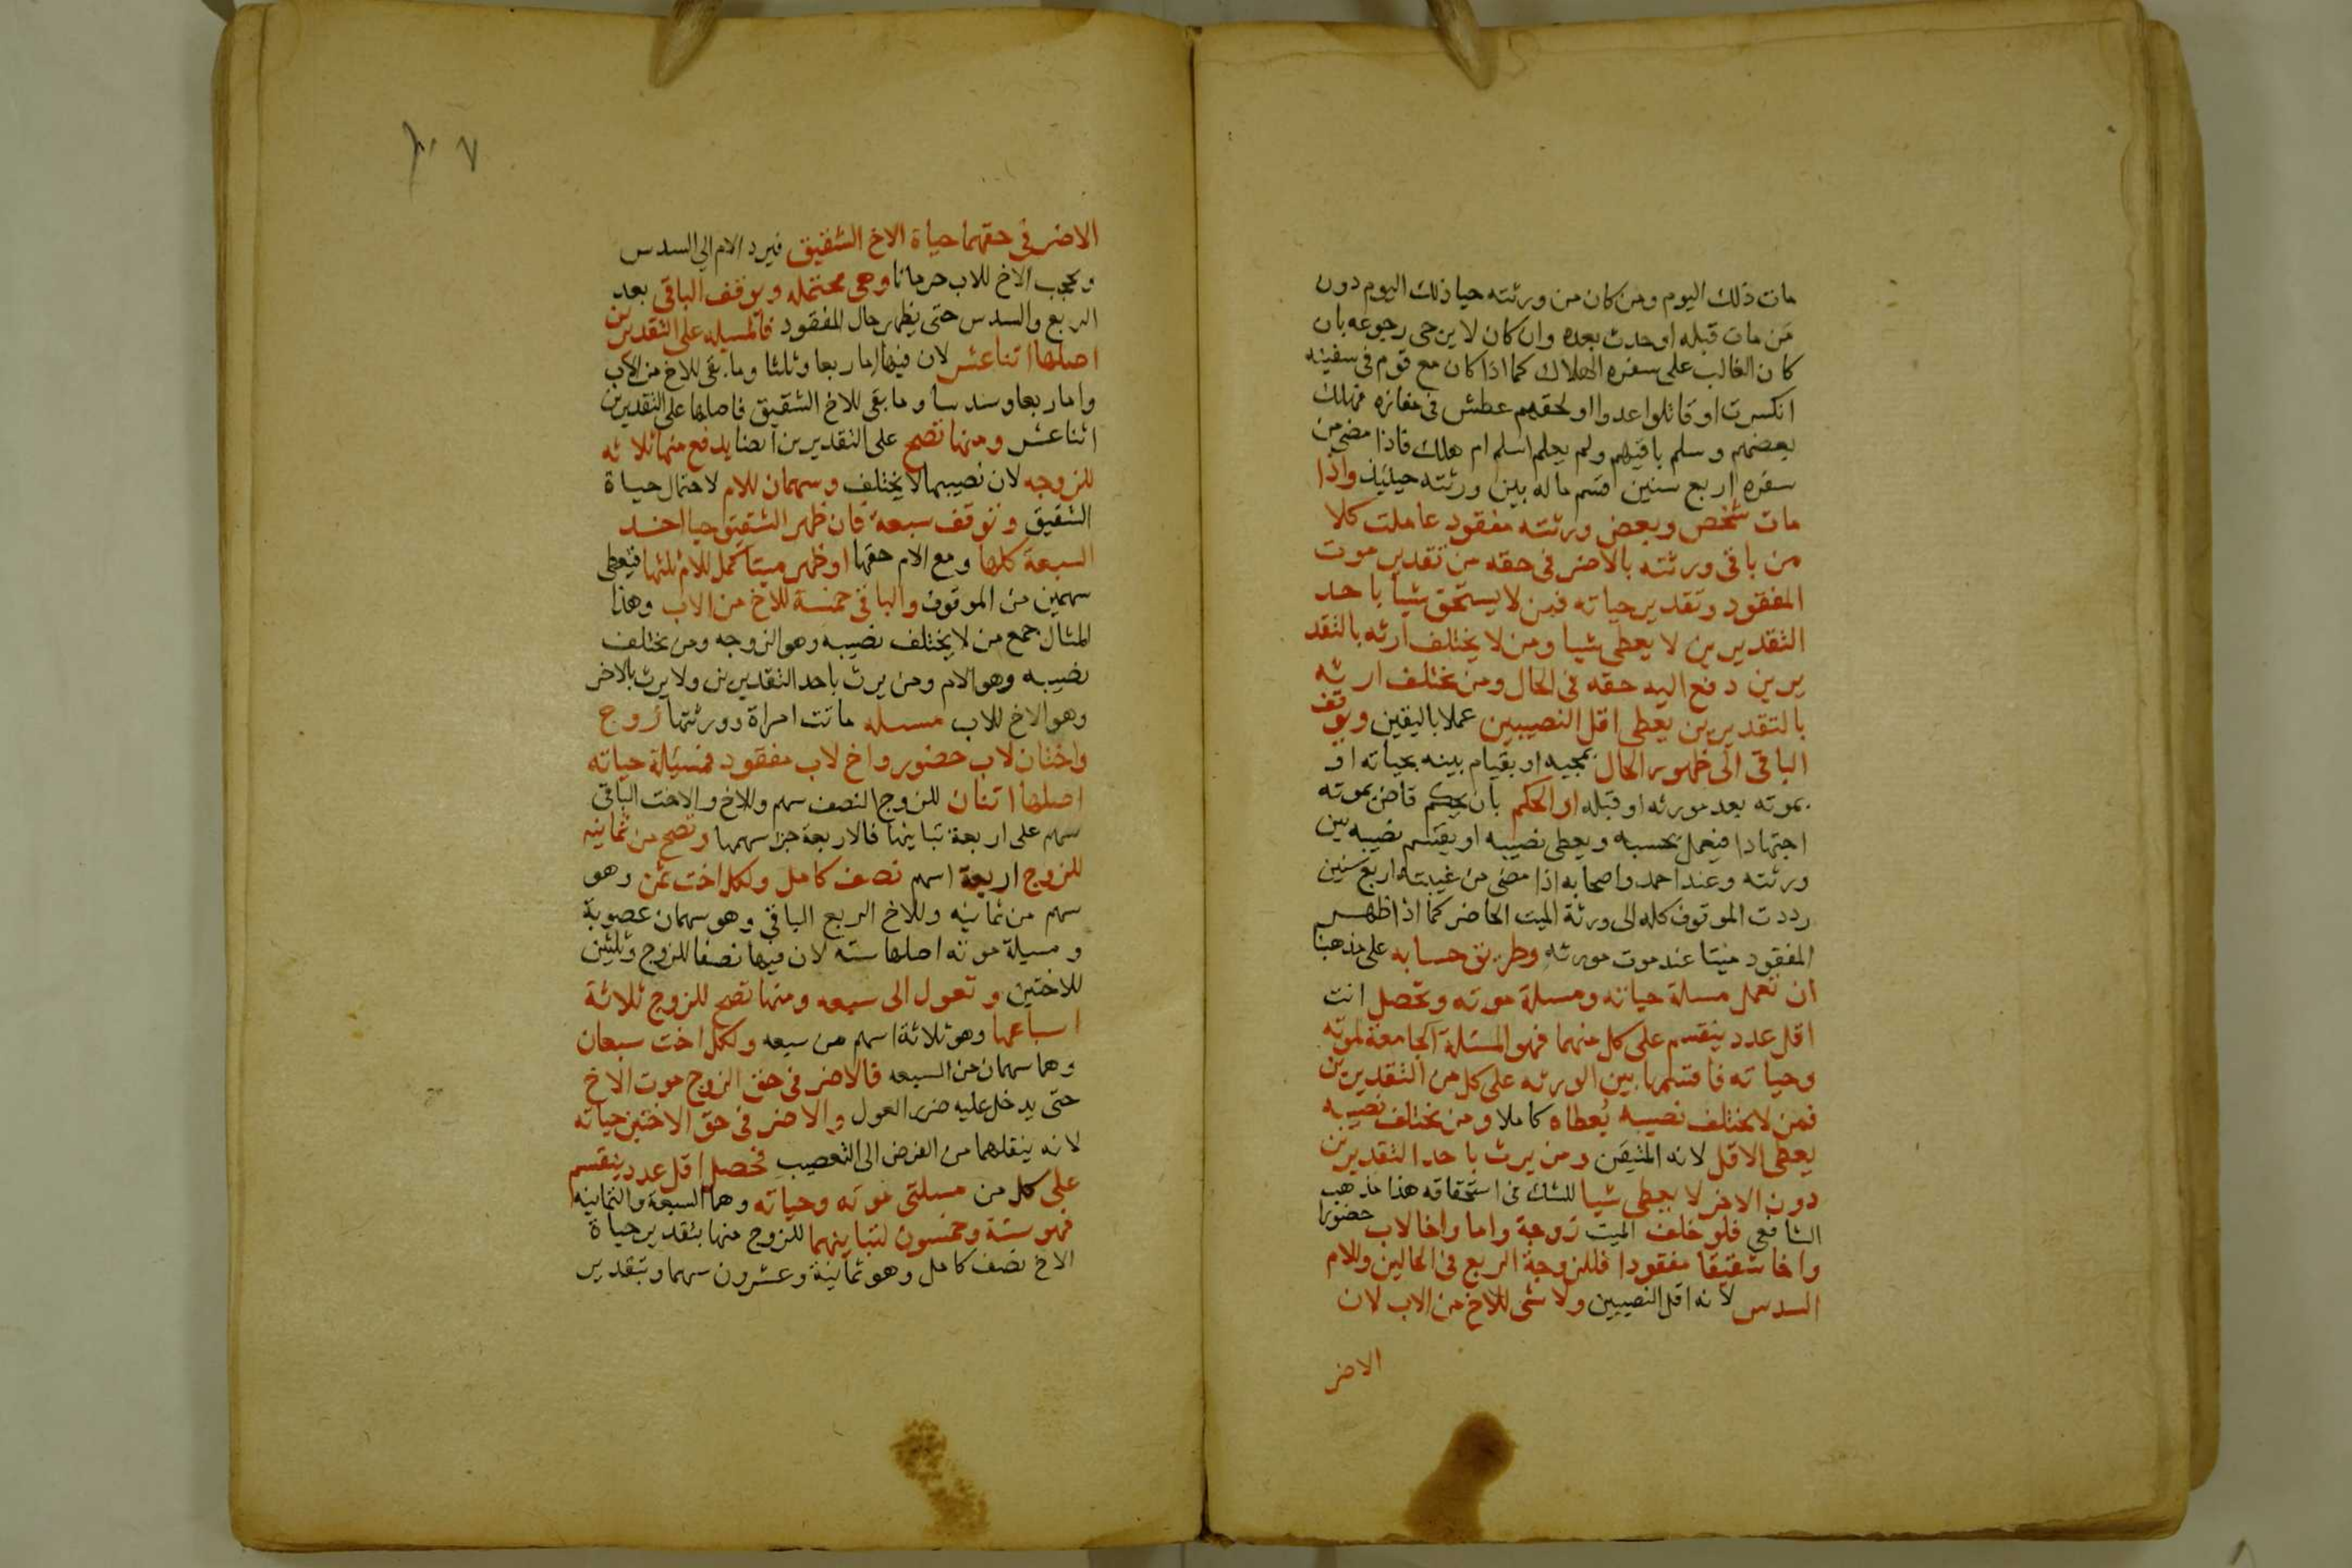 مات ذلك اليوم ومن كان من ورثته حيا ذلك اليوم دون
من مات قبله او حدث بعده وان كان لا يرجى رجوعه بان
كان الغالب على سفره الهلاك كما اذا كان مع قوم فى سفينه
انكسرت او قاتلوا عدوا او لحقهم عطش فى مفازه فهلك
بعضهم وسلم باقيهم ولم يعلم اسلم ام هلك فاذا مضى من
سفره اربع سنين اقتسم ماله بين ورثته حينيذ واذا
مات شخص وبعض ورثته مفقود عاملت كلا
من باقى ورثته بالاضر فى حقه من تقدير موت
المفقود وتقدير حياته فمن لا يستحق شيا باحد
التقديرين لا يعطى شيا ومن لا يختلف ارثه بالتقد
يرين دفع اليه حقه فى الحال ومن يختلف ارثه
بالتقديرين يعطى اقل النصيبين عملا باليقين ويوقف
الباقى الى ظهور الحال بمجيه او بقيام بينه بحياته او
بموته بعد مورثه او قبله او الحكم بان يحكم قاض بموته
اجتهادا فيعمل بحسبه ويعطى نصيبه او يقسم نصيبه بين
ورثته وعند احمد واصحابه اذا مضى من غيبته اربع سنين
رددت الموقوف كله الى ورثة الميت الحاضر كما اذا ظهر
المفقود ميتا عند موت مورثه وطريق حسابه على مذهبنا
ان تعمل مسلة حياته ومسلة موته وتحصل انت
اقل عدد ينقسم على كل منهما فهو المسئلة الجامعة لموته
وحياته فاقتسمها بين الورثه على كل من التقديرين
فمن لا يختلف نصيبه يعطاه كاملا ومن يختلف نصيبه
يعطى الاقل لانه المتيقن ومن يرث باحد التقديرين
دون الاخر لا يعطى شيا للشك فى استحقاقه هذا مذهب
الشافعى فلو خلف الميت زوجة واما واخا لاب حضورا
واخا شقيقا مفقودا فللزوجة الربع فى الحالين وللام
السدس لانه اقل النصيبين ولا شى للاخ من الاب لان
الاضر
الاضر فى حقهما حياة الاخ الشقيق فيرد الام الى السدس
ويحجب الاخ للاب حرمانا وهى محتمله ويوقف الباقى بعد
الربع والسدس حتى يظهر حال المفقود فالمسيله على التقديرين
اصلها اثنا عشر لان فيها اما ربعا وثلثا وما بقى للاخ من الاب
واما ربعا وسدسا وما بقى للاخ الشقيق فاصلها على التقديرين
اثنا عشر ومنها تصح على التقديرين ايضا يدفع منها ثلاثه
للزوجه لان نصيبها لا يختلف وسهمان للام لاحتمال حياة
الشقيق وتوقف سبعة فان ظهر الشقيق حيا اخذ
السبعة كلها ومع الام حقها او ظهر ميتا كمل للام ثلثها فيعطى
سهمين من الموقوف والباقى خمسة للاخ من الاب وهذا
المثال جمع من لا يختلف نصيبه وهو الزوجه ومن يختلف
نصيبه وهو الام ومن يرث باحد التقديرين ولا يرث بالاخر
وهو الاخ للاب مسله ماتت امراة وورثتها زوج
واختان لاب حضور واخ لاب مفقود فمسيلة حياته
اصلها اثنان للزوج النصف سهم وللاخ والاخت الباقى
سهم على اربعة تباينها فالاربعة جزا سهمها وتصح من ثمانيه
للزوج اربعة اسهم نصف كامل ولكل اخت ثمن وهو
سهم من ثمانيه وللاخ الربع الباقى وهو سهمان عصوبة
ومسيلة موته اصلها سته لان فيها نصفا للزوج وثلثين
للاختين وتعول الى سبعه ومنها تصح للزوج ثلاثة
اسباعها وهو ثلاثة اسهم من سبعه ولكل اخت سبعان
وهما سهمان من السبعه فالاضر فى حق الزوج موت الاخ
حتى يدخل عليه ضرر العول والاضر فى حق الاختين حياته
لانه ينقلهما من الفرض الى التعصيب فحصل اقل عدد ينقسم
على كل من مسلتى موته وحياته وهما السبعة والثمانيه
فهو ستة وخمسون لتباينهما للزوج منها بتقدير حياة
الاخ نصف كامل وهو ثمانية وعشرون سهما وبتقدير